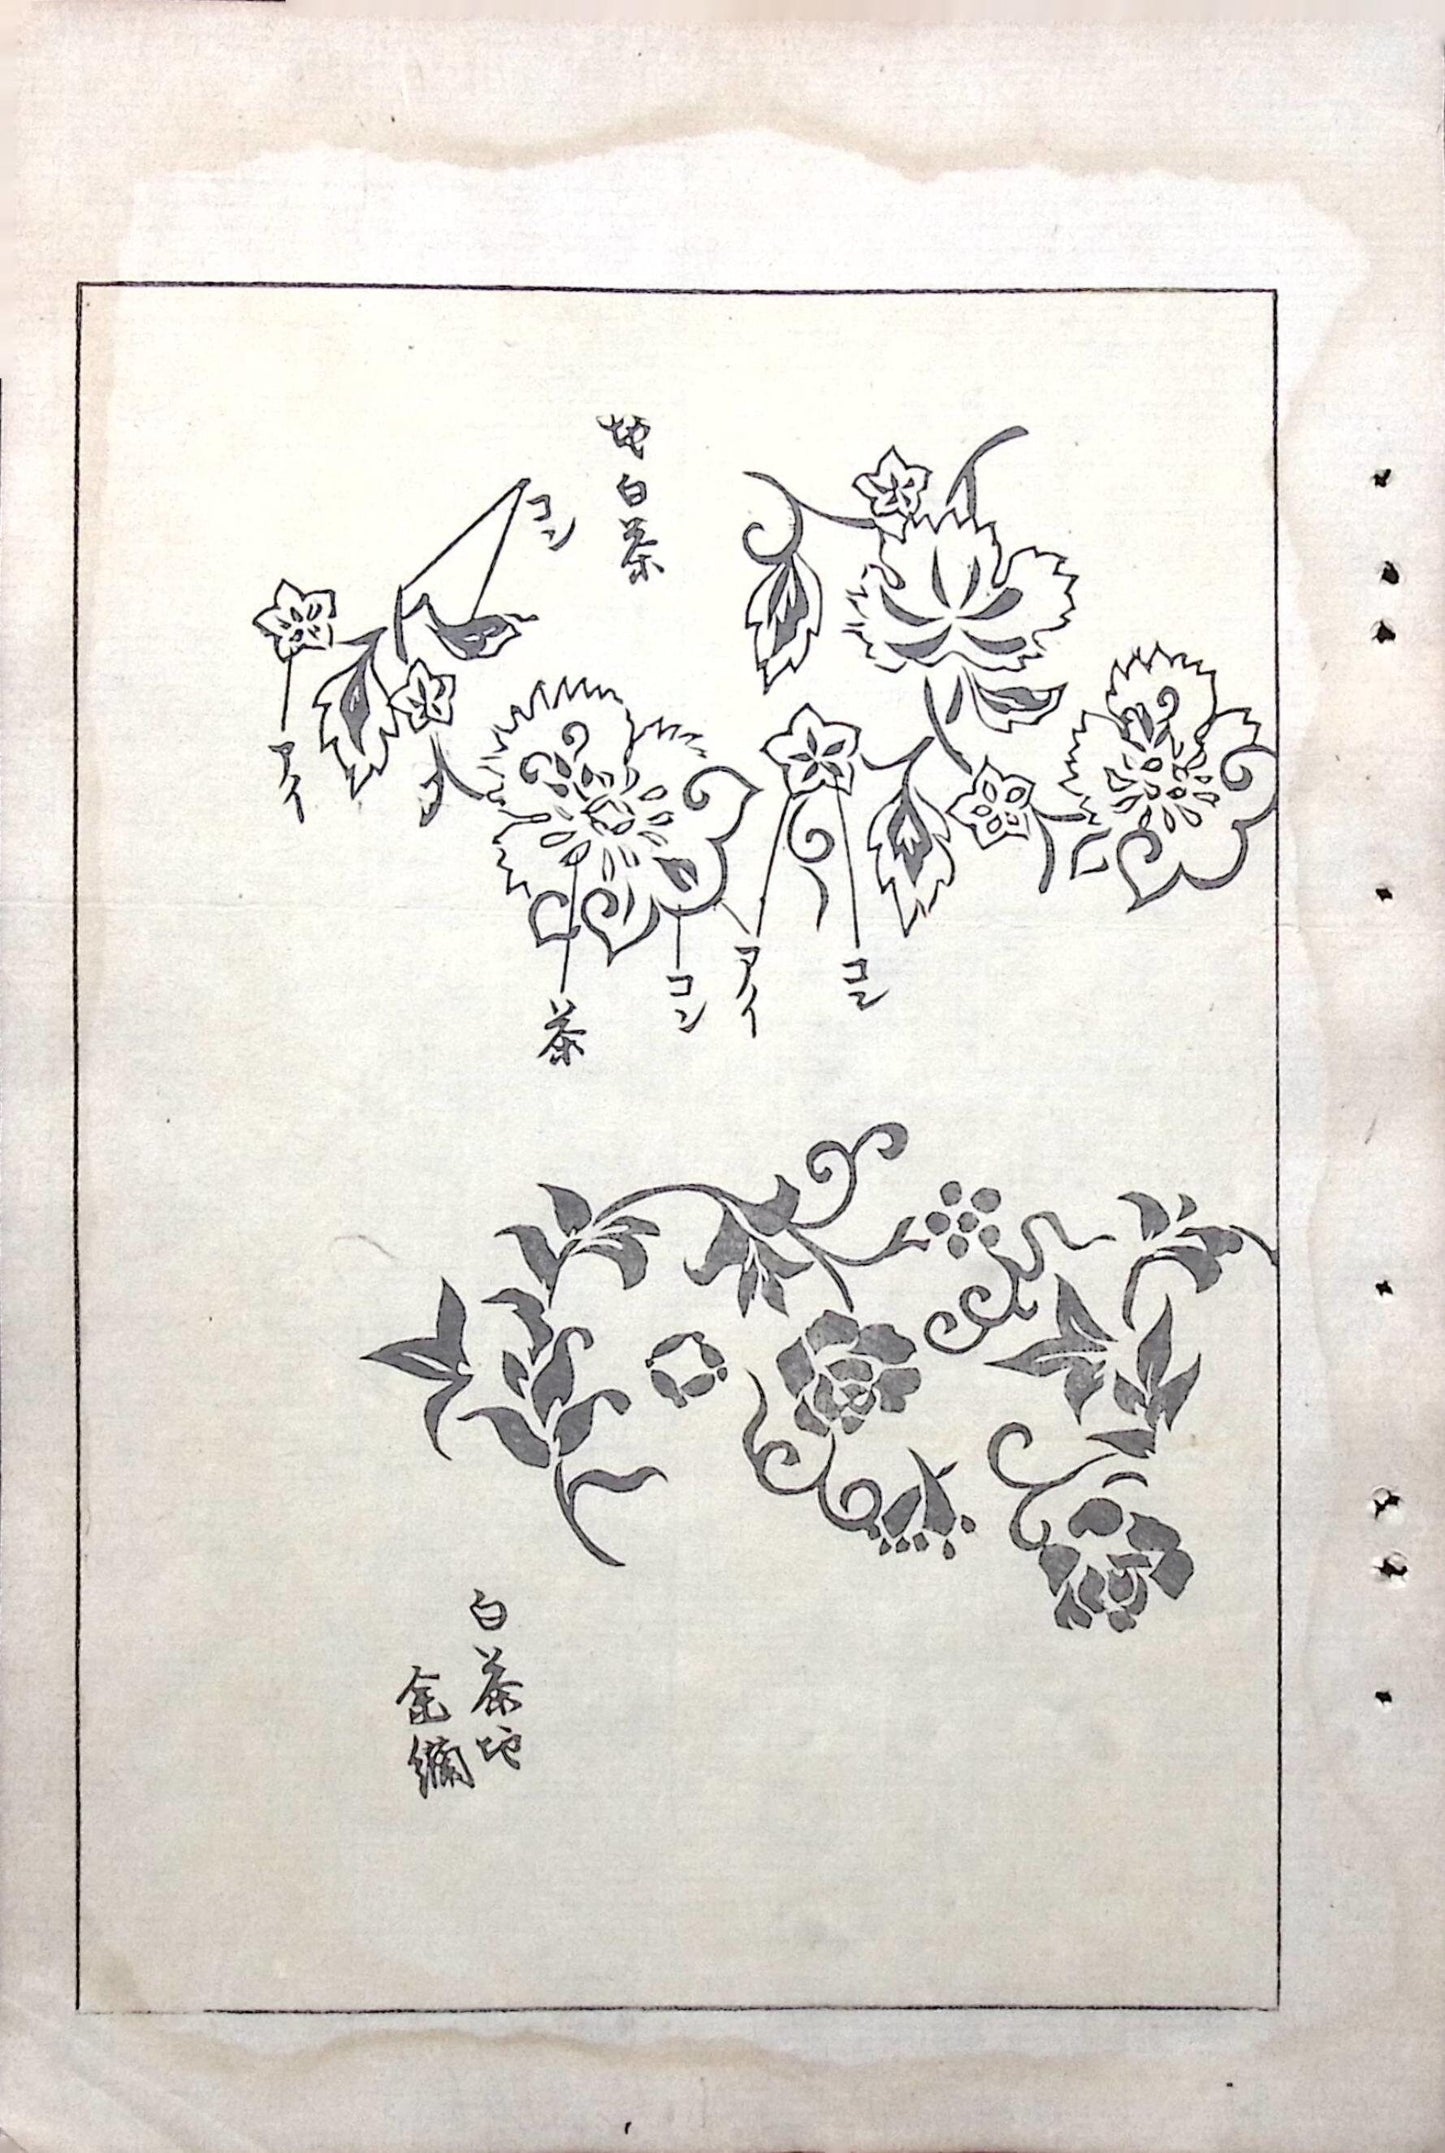 地白茶
コン
アイ
コン
アイ
コン
茶
白茶地
金繍